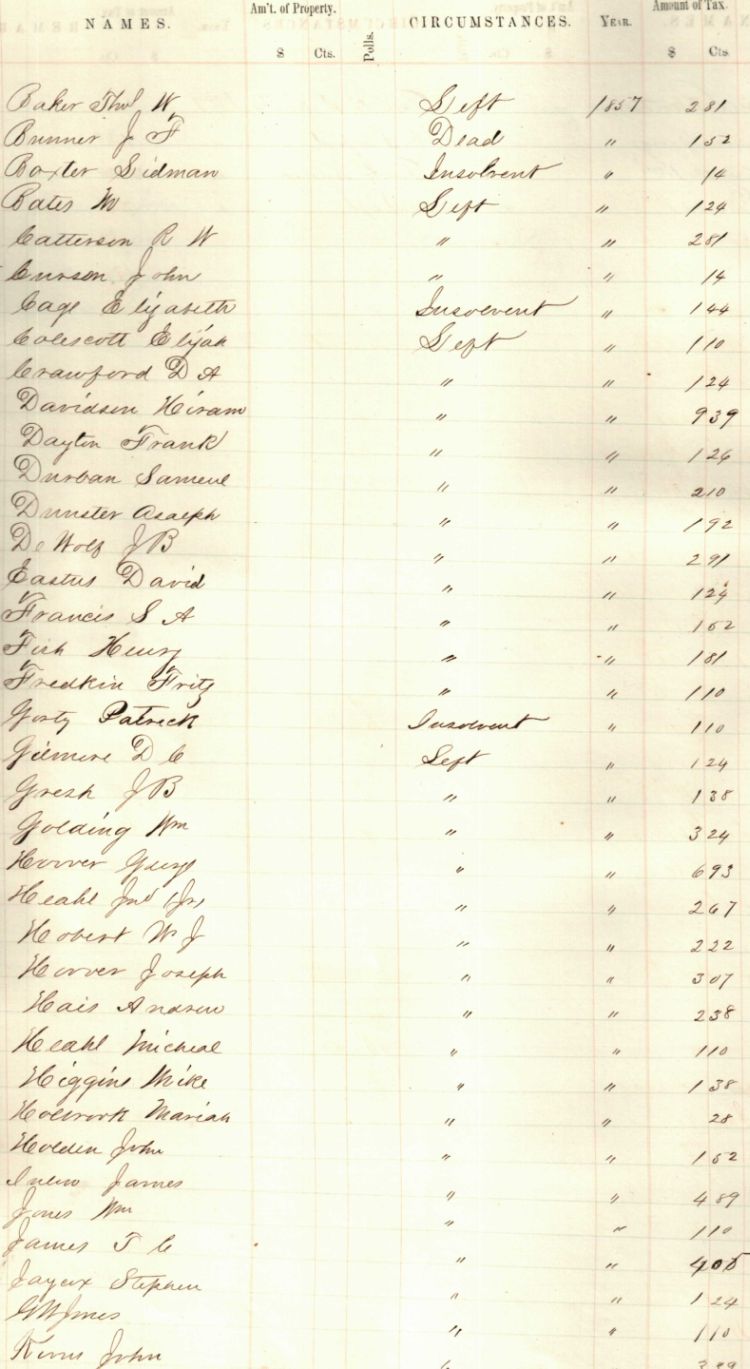 NAMES. Am't. of Property. Polls. CIRCUMSTANCES. YEAR. Amount of Tax.
$ Cts. $ Cts
Baker Thos W Left 1857 281
Bunner J F Dead " 152
Baxter Sidman Insolvent " 14
Bates M Left " 124
Catterson R W " " 281
Curson John " " 14
Cage Elizabeth Insolvent " 144
Colescott Elijah Left " 110
Crawford D A " " 124
Davidson Hiram " " 939
Dayton Frank " " 126
Durban Samuel " " 210
Dunster Asaeph " " 192
De Wolf J B " " 291
Eastus David " " 124
Francis S A " " 152
Fish Henry " " 181
Fredkin Fritz " " 110
Gorty Patrick Insolvent " 110
Gilmore D C Left " 124
Gresh J B " " 138
Golding Wm " " 324
Hoover " " 693
Heahl " " 267
Hobert W J " " 222
Hoover Joseph " " 307
Hais Andrew " " 238
Heahl Micheal " " 110
Higgins Mike " " 138
Holbrook Mariah " " 28
Holden John " " 152
James " " 489
Jones Wm " " 110
James T C " " 405
Stephen " " 124
G W Jones " " 110
John